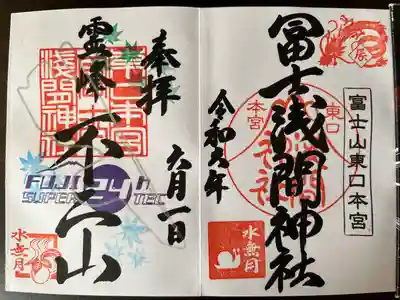 富士山東口本宮
冨士浅間神社
東口
本宮
令和六年
水無月
辰
奉拝
六月一日
霊峰
不二山
浅間神社
FUJI 24h
SUPER TEC
水無月